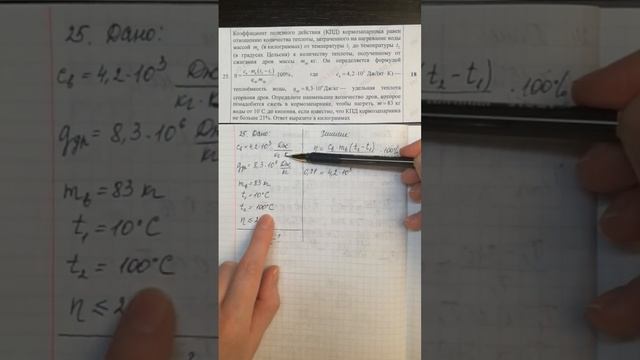 Коэффициент полезного действия (КПД) кормозапарника равен
отношению количества теплоты, затраченного на нагревание воды
массой mв (в килограммах) от температуры t₁ до температуры t₂
(в градусах Цельсия) к количеству теплоты, полученному от
сжигания дров массы mдр кг. Он определяется формулой
25 η = cв·mв(t₂−t₁)/qдр mдр · 100%, где cв = 4,2·10³ Дж/(кг·К) — 18
теплоёмкость воды, qдр = 8,3·10⁶ Дж/кг — удельная теплота
сгорания дров. Определите наименьшее количество дров, которое
понадобится сжечь в кормозапарнике, чтобы нагреть m = 83 кг
воды от 10°C до кипения, если известно, что КПД кормозапарника
не больше 21%. Ответ выразите в килограммах
25. Дано:
cв = 4,2·10³ Дж/кг
qдр = 8,3·10⁶ Дж/кг
mв = 83 кг
t₁ = 10°C
t₂ = 100°C
η ≤ 2
η = cв·mв(t₂−t₁) ·100%
0,21 = 4,2·10³
25. Дано:
cв = 4,2·10³ Дж/кг
qдр = 8,3·10⁶ Дж/кг
mв = 83 кг
t₁ = 10°C
t₂ = 100°C
η ≤ 2
(t₂−t₁) ·100%